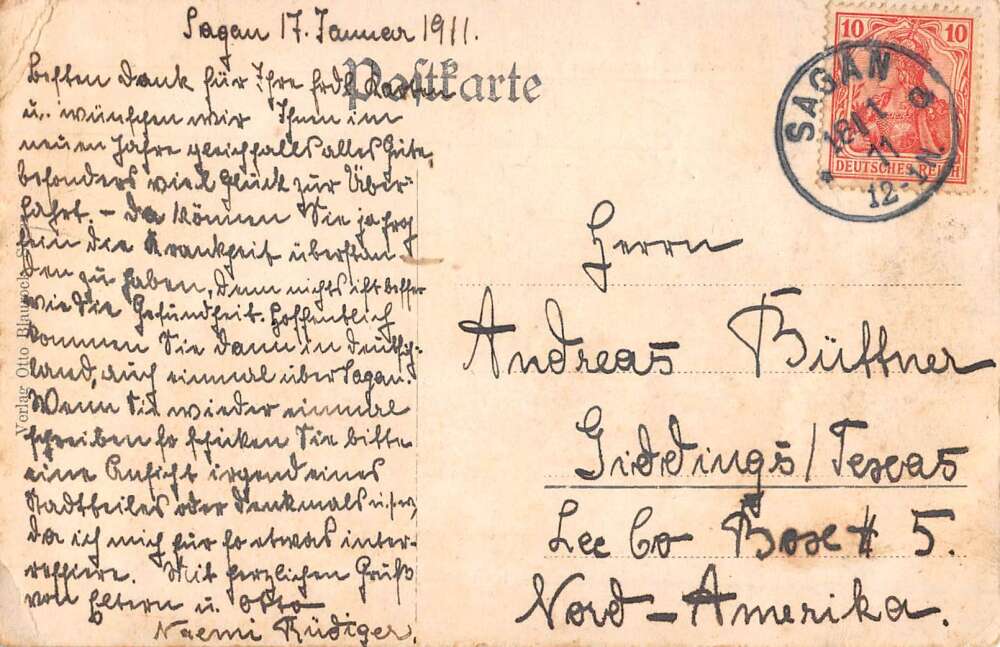 Sagan 17. Januar 1911.
Postkarte
Besten Dank für Ihre frdl. Karten
u. wünschen wir Ihnen im
neuen Jahre gleichfalls alles Gute,
besonders viel Glück zur Über-
fahrt. – Da können Sie ja froh
sein die Krankheit überstan
den zu haben, denn nichts ist besser
wie die Gesundheit. Hoffentlich
kommen Sie dann in Deutsch-
land, auch einmal über Sagan.
Wenn Sie wieder einmal
schreiben so schicken Sie bitte
eine Ansicht irgend eines
Stadtteiles oder Denkmals u.s.w,
da ich mich für so etwas inter-
ressiere. Mit herzlichen Gruß
von Eltern u. Otto
Naemi Rüdiger.
Verlag Otto Blaurock
10 10
DEUTSCHES REICH
SAGAN
18 1 11
12-1N.
Herrn
Andreas Büttner
Giddings/Texas
Lee Co Boxe # 5.
Nord-Amerika.